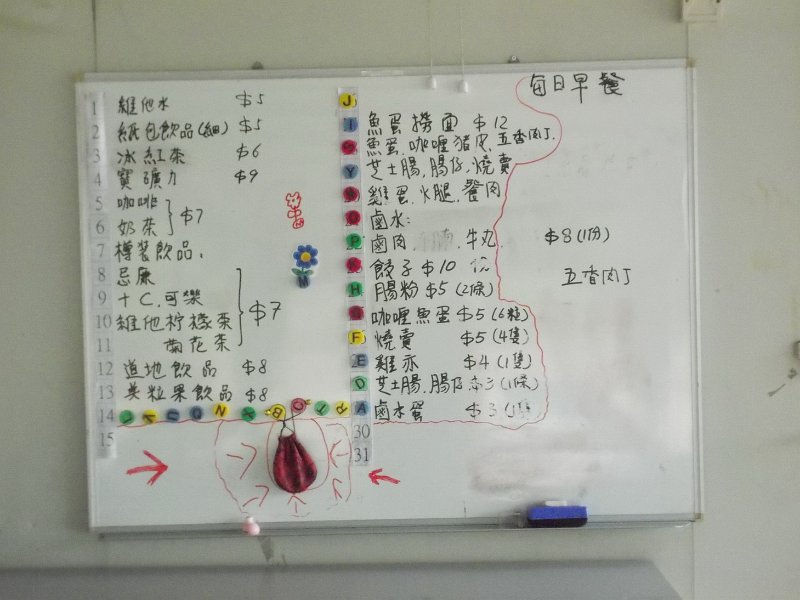 每日早餐
1 維他水 $5
2 紙包飲品(細) $5
3 冰紅茶 $6
4 寶礦力 $9
5 咖啡
6 奶茶 } $7
7 樽裝飲品:
8 忌廉
9 十C.可樂
10 維他柠檬茶 $7
11 菊花茶
12 道地飲品 $8
13 美粒果飲品 $8
14
15
J
I
S
Y
P
K
H
F
E
D
A
30
31
魚蛋撈面 $12
魚蛋,咖喱豬皮,五香肉丁.
芝士腸,腸仔,燒賣
雞蛋,火腿,餐肉
鹵水:
鹵肉, 牛丸. $8(1份)
五香肉丁
餃子$10
腸粉$5(2條)
咖喱魚蛋$5(6粒)
燒賣 $5(4隻)
雞亦 $4(1隻)
芝士腸,腸仔$3(1條)
鹵水蛋 $3(1隻